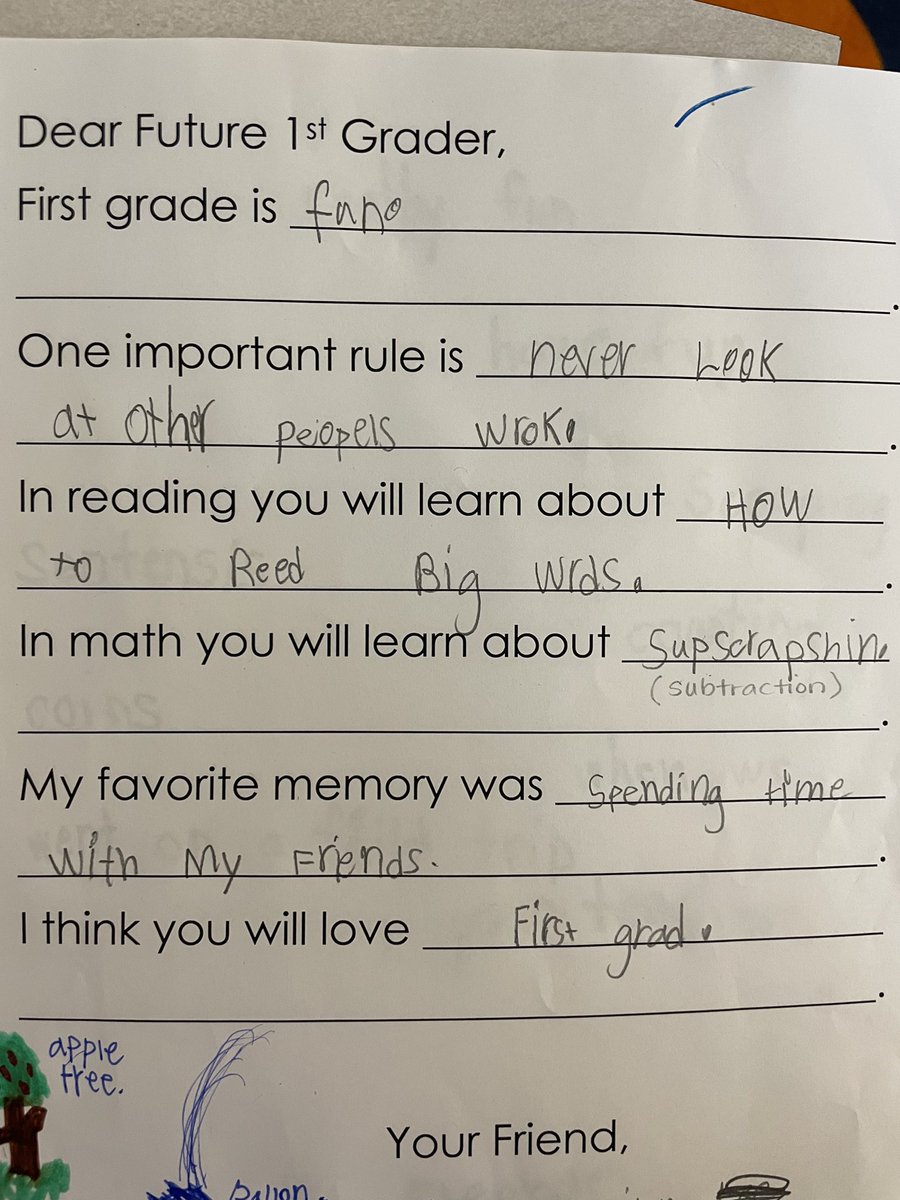 Dear Future 1st Grader,
First grade is fun.
.
One important rule is never Look
at other peiopels wrok. .
In reading you will learn about HOW
to Reed Big wrds. .
In math you will learn about Supscrapshin.
(subtraction)
.
My favorite memory was Spending time
with My Friends. .
I think you will love First grad.
.
apple
tree.
Your Friend,